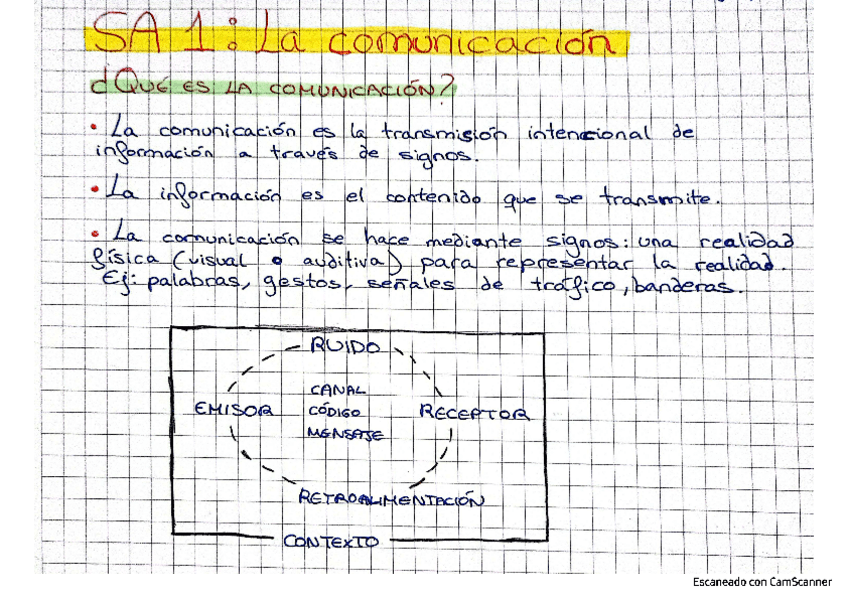 SA 1: La comunicación
¿QUÉ ES LA COMUNICACIÓN?
• La comunicación es la transmisión intencional de
información a través de signos.
• La información es el contenido que se transmite.
• La comunicación se hace mediante signos: una realidad
física (visual o auditiva) para representar la realidad.
Ej: palabras, gestos, señales de tráfico, banderas.
RUIDO
CANAL
EMISOR CÓDIGO RECEPTOR
MENSAJE
RETROALIMENTACIÓN
CONTEXTO
Escaneado con CamScanner